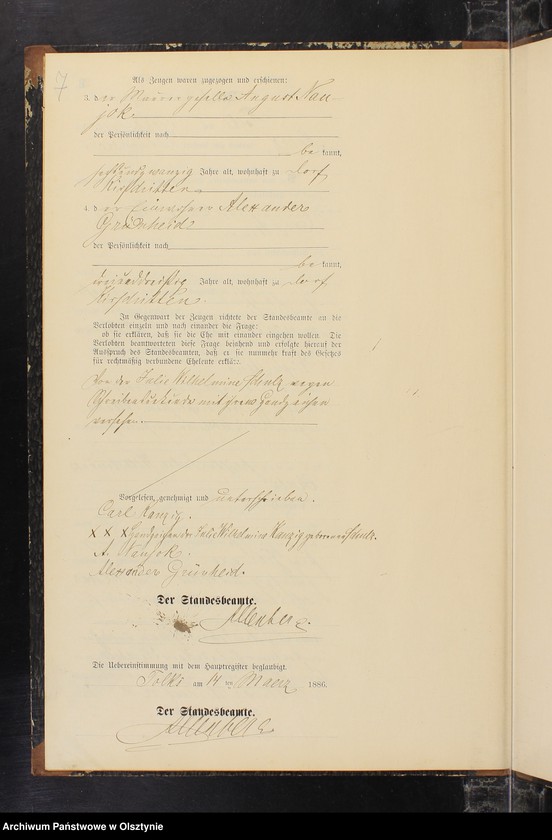 7
Als Zeugen waren zugezogen und erschienen:
3. der Maurergeselle August Nau-
jok
der Persönlichkeit nach
be kannt,
sechsundzwanzig Jahre alt, wohnhaft zu Dorf
4. der Einwohner Alexander
Grünheid
der Persönlichkeit nach
be kannt,
Jahre alt, wohnhaft zu Dorf
In Gegenwart der Zeugen richtete der Standesbeamte an die
Verlobten einzeln und nach einander die Frage:
ob sie erklären, daß sie die Ehe mit einander eingehen wollen. Die
Verlobten beantworteten diese Frage bejahend und erfolgte hierauf der
Ausspruch des Standesbeamten, daß er sie nunmehr kraft des Gesetzes
für rechtmäßig verbundene Eheleute erkläre.
Von der Julie Wilhelmine Schulz wegen
Schreibensunkunde mit ihrem Handzeichen
versehen.
Vorgelesen, genehmigt und unterschrieben.
Carl Kanzig.
X X X Handzeichen der Julie Wilhelmine Kanzig geborene Schulz.
A. Naujok.
Alexander Grünheid.
Der Standesbeamte.
Die Uebereinstimmung mit dem Hauptregister beglaubigt.
Tolks am 14 ten Maerz 1886.
Der Standesbeamte.
Archiwum Państwowe w Olsztynie